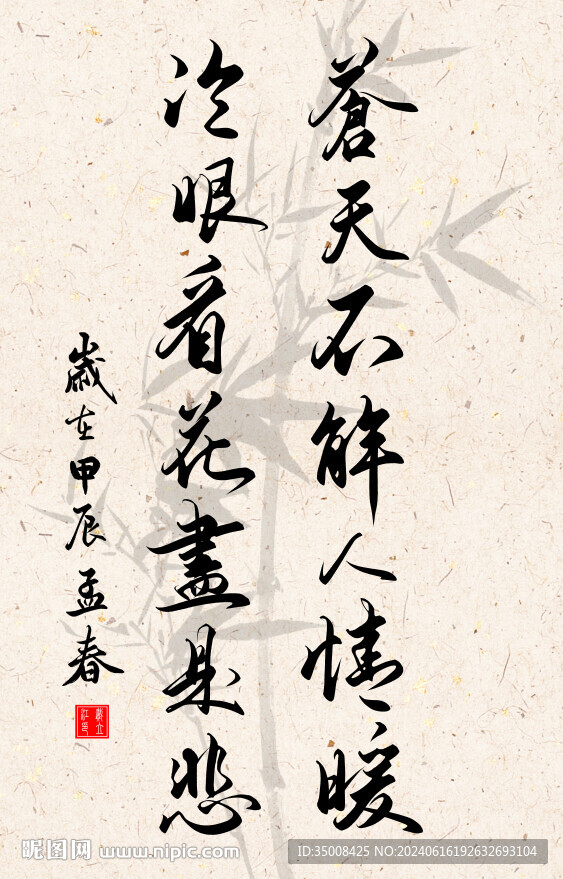 蒼天不解人情暖
冷眼看花盡是悲
歲在甲辰孟春
昵图网 www.nipic.com
ID:35008425 NO:20240616192632693104